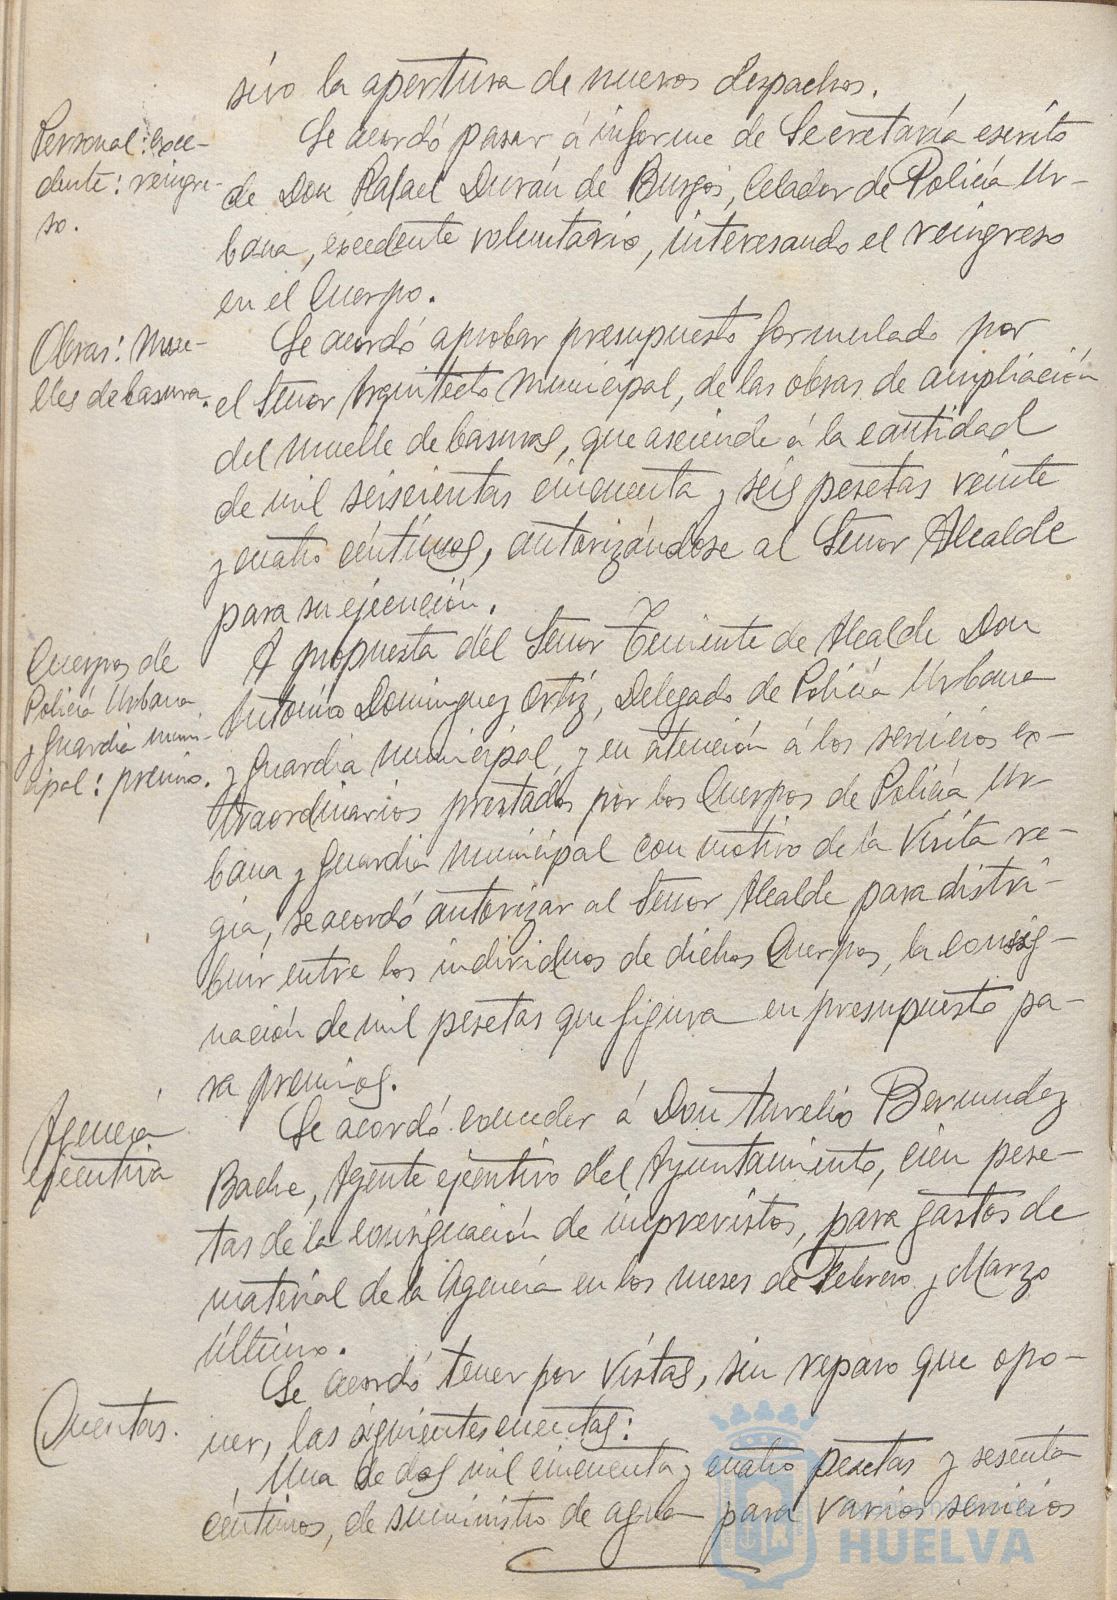 sivo la apertura de nuevos despachos.
Personal: exce-
dente: reingre-
so.
Se acordó pasar á informe de Secretaría escrito
de Don Rafael Durán de Burgos, Celador de Policía Ur-
bana, excedente voluntario, interesando el reingreso
en el Cuerpo.
Obras: Mue-
lles de basura.
Se acordó aprobar presupuesto formulado por
el Señor Arquitecto Municipal, de las obras de ampliación
del muelle de basuras, que asciende á la cantidad
de mil seiscientas cincuenta y seis pesetas veinte
y cuatro céntimos, autorizándose al Señor Alcalde
para su ejecución.
Cuerpos de
Policía Urbana
y Guardia muni-
cipal: premio.
A propuesta del Señor Teniente de Alcalde Don
Antonio Dominguez Ortiz, Delegado de Policía Urbana
y Guardia municipal, y en atención á los servicios ex-
traordinarios prestados por los Cuerpos de Policía Ur-
bana y Guardia Municipal con motivo de la Visita re-
gia, se acordó autorizar al Señor Alcalde para distri-
buir entre los individuos de dichos Cuerpos, la consig-
nación de mil pesetas que figura en presupuesto pa-
ra premios.
Agencia
ejecutiva
Se acordó conceder á Don Aurelio Bermudez
Bache, Agente ejecutivo del Ayuntamiento, cien pese-
tas de la consignación de imprevistos, para gastos de
material de la Agencia en los meses de Febrero y Marzo
último.
Cuentas.
Se acordó tener por vistas, sin reparo que opo-
ner, las siguientes cuentas:
Una de dos mil cincuenta y cuatro pesetas y sesenta
céntimos, de suministro de agua para varios servicios
HUELVA